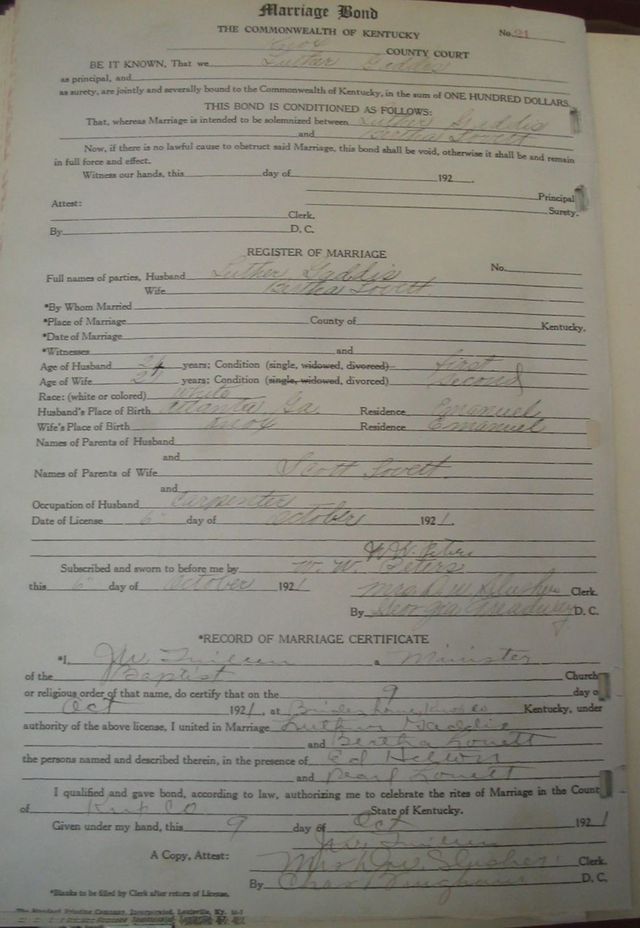 Marriage Bond
THE COMMONWEALTH OF KENTUCKY No. 21
Knox COUNTY COURT
BE IT KNOWN, That we Luther Gaddis
as principal, and
as surety, are jointly and severally bound to the Commonwealth of Kentucky, in the sum of ONE HUNDRED DOLLARS.
THIS BOND IS CONDITIONED AS FOLLOWS:
That, whereas Marriage is intended to be solemnized between Luther Gaddis
and Bertha Lovett
Now, if there is no lawful cause to obstruct said Marriage, this bond shall be void, otherwise it shall be and remain
in full force and effect.
Witness our hands, this day of 192
Principal
Attest: Surety.
Clerk.
By D. C.
REGISTER OF MARRIAGE
Full names of parties, Husband Luther Gaddis No.
Wife Bertha Lovett
*By Whom Married
*Place of Marriage County of Kentucky.
*Date of Marriage
*Witnesses and
Age of Husband 24 years; Condition (single, widowed, divorced) first
Age of Wife 27 years; Condition (single, widowed, divorced) Second
Race: (white or colored) White
Husband's Place of Birth Atlanta Ga Residence Emanuel
Wife's Place of Birth Knox Residence Emanuel
Names of Parents of Husband
and
Names of Parents of Wife Scott Lovett
and
Occupation of Husband Carpenter
Date of License 6 day of October 1921.
W. W. Peters
Subscribed and sworn to before me by W. W. Peters
this 6 day of October 1921 Mrs Daw Slusher Clerk.
By Georgia D. C.
*RECORD OF MARRIAGE CERTIFICATE
*I, Jno. a Minister
of the Baptist Church
or religious order of that name, do certify that on the 9 day o
Oct 1921, at Knox Co Kentucky, under
authority of the above license, I united in Marriage Luther Gaddis
and Bertha Lovett
the persons named and described therein, in the presence of Ed Helton
and Pearl Lovett
I qualified and gave bond, according to law, authorizing me to celebrate the rites of Marriage in the Count
of Knox Co State of Kentucky.
Given under my hand, this 9 day of Oct 1921
Jno.
A Copy, Attest: Mrs Daw Slusher Clerk.
By Chas Bingham D. C.
*Blanks to be filled by Clerk after return of License.
The Standard Printing Company, Incorporated, Louisville, Ky.